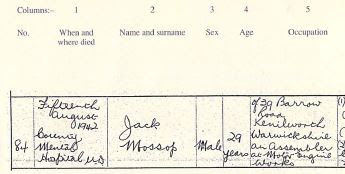 Columns:– 1 2 3 4 5
When and where died
No. Name and surname Sex Age Occupation
Fifteenth
August
1942
County
Mental
Hospital U.D
84
Jack
Mossop
Male
29
years
of 39 Barrow
Road
Kenilworth
Warwickshire
an Assembler
at Motor Engine
Works